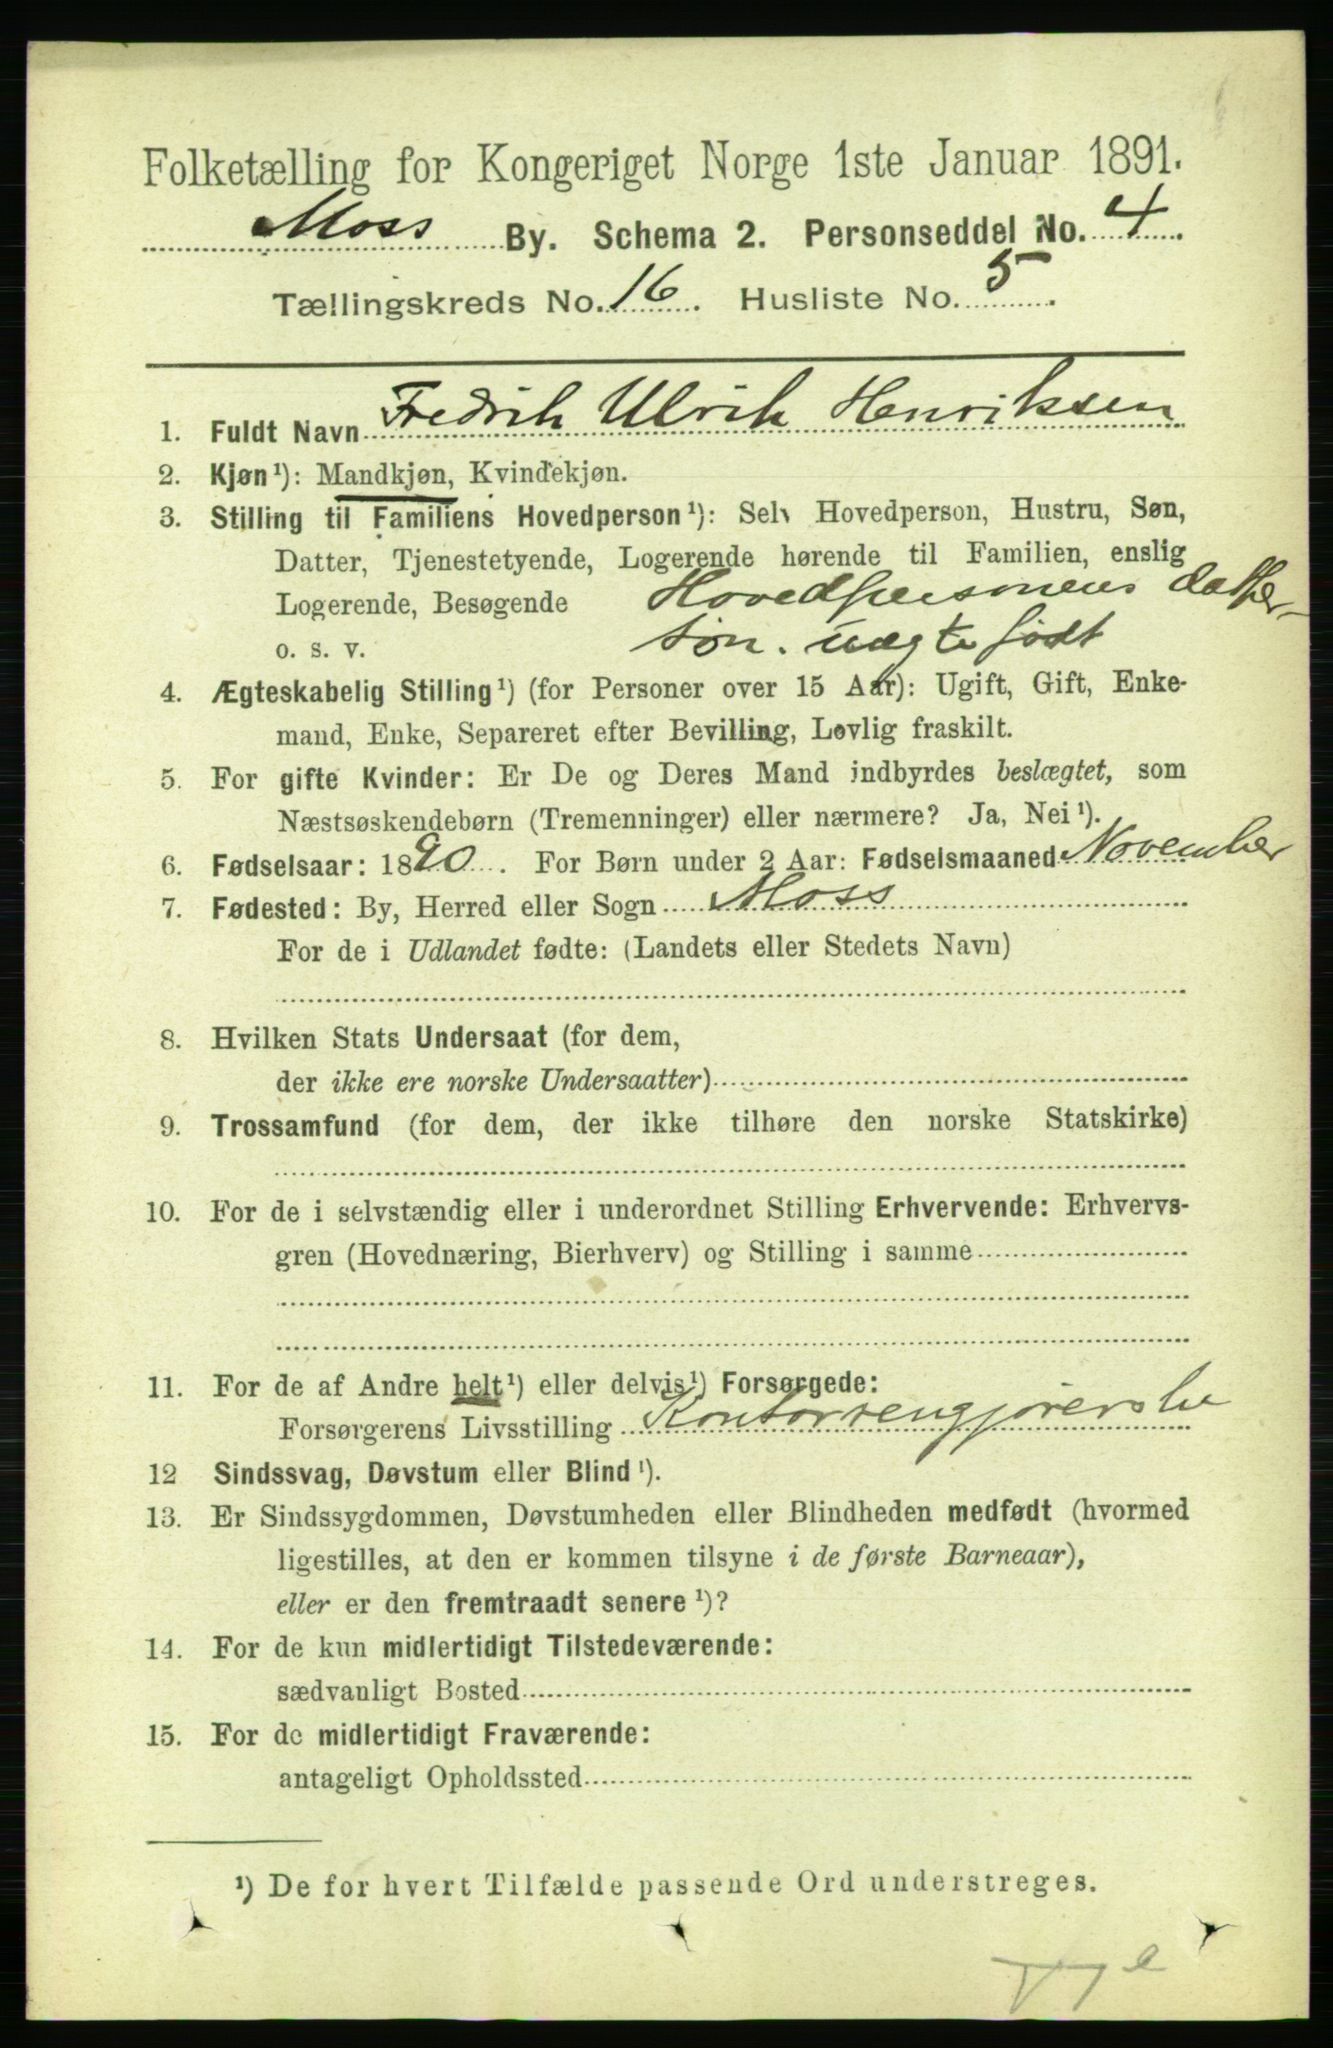 Folketælling for Kongeriget Norge 1ste Januar 1891.
Moss By. Schema 2. Personseddel No. 4
Tællingskreds No. 16. Husliste No. 5
1. Fuldt Navn Fredrik Ulrik Henriksen
2. Kjøn¹): Mandkjøn, Kvindekjøn.
3. Stilling til Familiens Hovedperson¹): Selv Hovedperson, Hustru, Søn,
Datter, Tjenestetyende, Logerende hørende til Familien, enslig
Logerende, Besøgende Hovedpersonens datter-
o. s. v. søn. uægte født
4. Ægteskabelig Stilling¹) (for Personer over 15 Aar): Ugift, Gift, Enke-
mand, Enke, Separeret efter Bevilling, Lovlig fraskilt.
5. For gifte Kvinder: Er De og Deres Mand indbyrdes beslægtet, som
Næstsøskendebørn (Tremenninger) eller nærmere? Ja, Nei¹).
6. Fødselsaar: 1890. For Børn under 2 Aar: Fødselsmaaned November
7. Fødested: By, Herred eller Sogn Moss
For de i Udlandet fødte: (Landets eller Stedets Navn)
8. Hvilken Stats Undersaat (for dem,
der ikke ere norske Undersaatter)
9. Trossamfund (for dem, der ikke tilhøre den norske Statskirke)
10. For de i selvstændig eller i underordnet Stilling Erhvervende: Erhvervs-
gren (Hovednæring, Bierhverv) og Stilling i samme
11. For de af Andre helt¹) eller delvis¹) Forsørgede:
Forsørgerens Livsstilling Kontorrengjørerske
12 Sindssvag, Døvstum eller Blind¹).
13. Er Sindssygdommen, Døvstumheden eller Blindheden medfødt (hvormed
ligestilles, at den er kommen tilsyne i de første Barneaar),
eller er den fremtraadt senere¹)?
14. For de kun midlertidigt Tilstedeværende:
sædvanligt Bosted
15. For de midlertidigt Fraværende:
antageligt Opholdssted
¹) De for hvert Tilfælde passende Ord understreges.